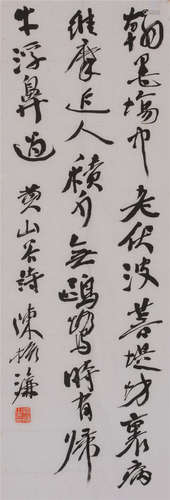 翰墨場中老伏波菩提坊裏病
維摩近人積水無鷗鷺時有歸
牛浮鼻過 黄山谷詩 陳振濂